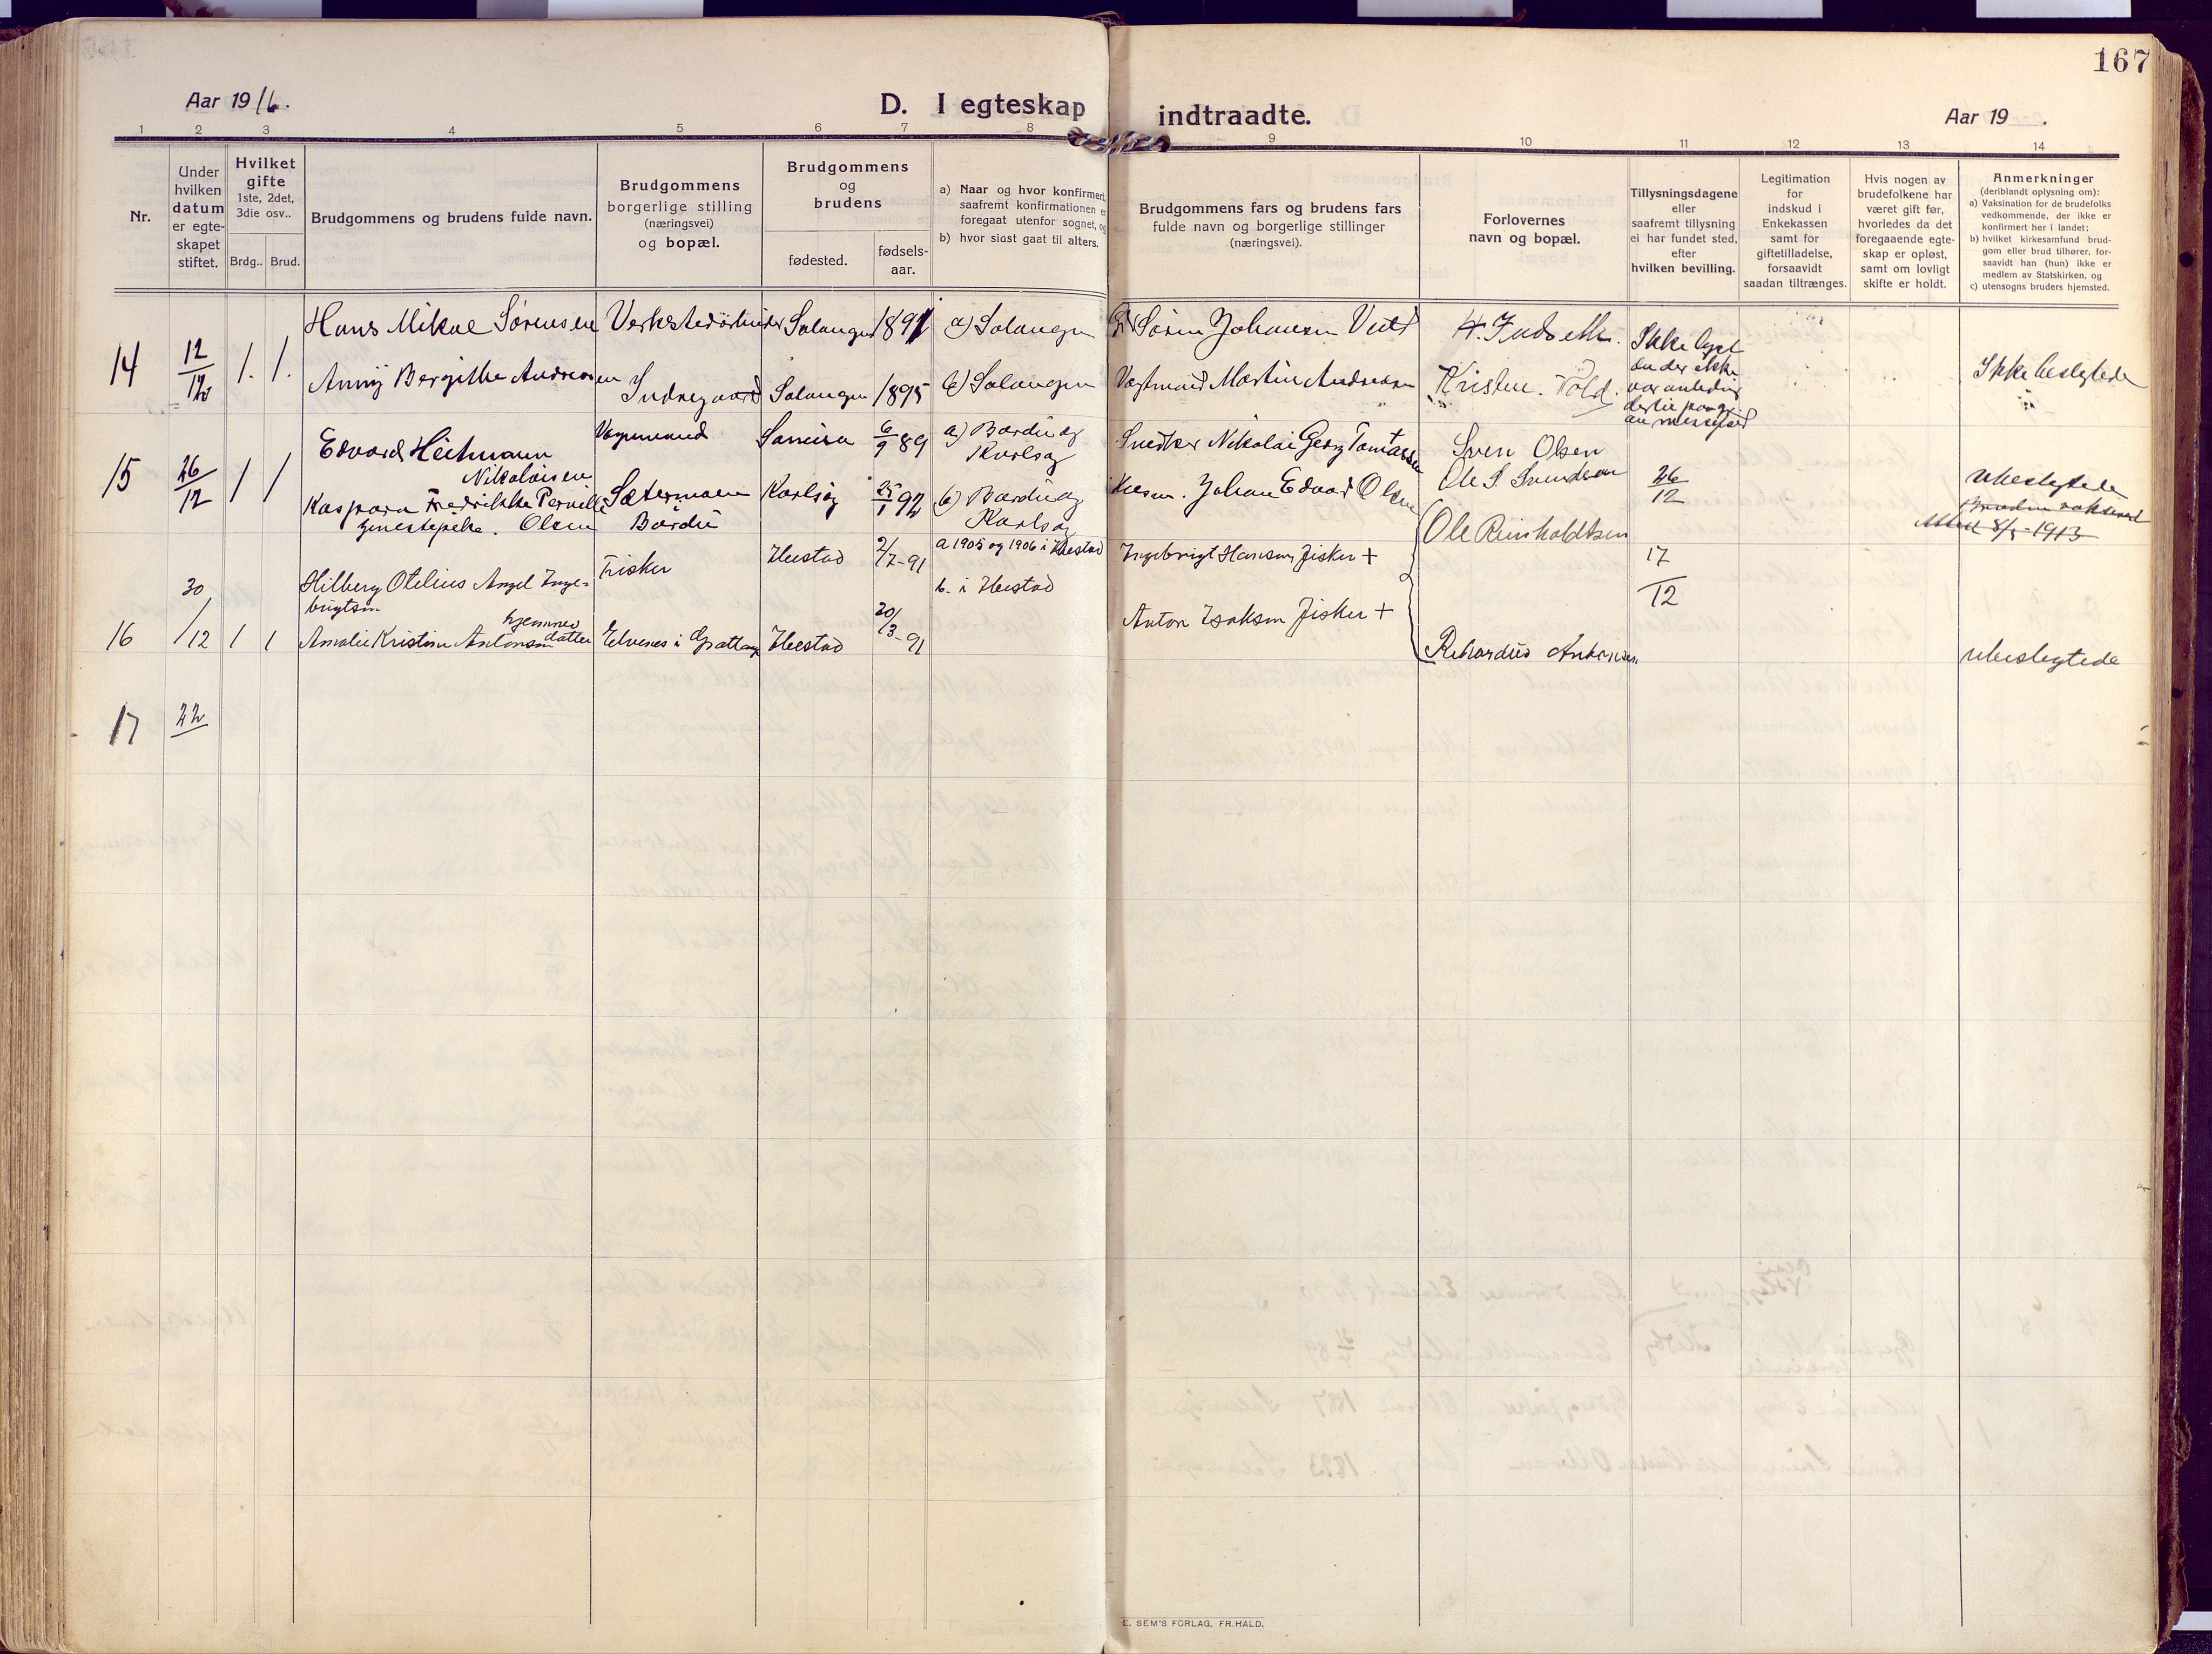 167
Aar 1916.
D. I egteskap indtraadte.
Aar 19 .
1 2 3 4 5 6 7 8 9 10 11 12 13 14
Nr.
Under hvilken datum er egte-skapet stiftet.
Hvilket gifte 1ste, 2det, 3die osv..
Brdg.. Brud.
Brudgommens og brudens fulde navn.
Brudgommens borgerlige stilling (næringsvei) og bopæl.
Brudgommens og brudens
fødested.
fødsels-aar.
a) Naar og hvor konfirmert, saafremt konfirmationen er foregaat utenfor sognet, og
b) hvor sidst gaat til alters.
Brudgommens fars og brudens fars fulde navn og borgerlige stillinger (næringsvei).
Forlovernes navn og bopæl.
Tillysningsdagene eller saafremt tillysning ei har fundet sted, efter hvilken bevilling.
Legitimation for indskud i Enkekassen samt for giftetilladelse, forsaavidt saadan tiltrænges.
Hvis nogen av brudefolkene har været gift før, hvorledes da det foregaaende egte-skap er opløst, samt om lovligt skifte er holdt.
Anmerkninger (deriblandt oplysning om):
a) Vaksination for de brudefolks vedkommende, der ikke er konfirmert her i landet;
b) hvilket kirkesamfund brud-gom eller brud tilhører, for-saavidt han (hun) ikke er medlem av Statskirken, og
c) utensogns bruders hjemsted.
Hans Mikal Sørensen Verkstedarbeider Salangen 1891 a) Salangen Søren Johansen
14 12/12 1. 1. Anny Bergithe Andreasen Salangen 1895 b) Salangen Martin Andreasen Kristen Ikke beslegtede
Edvard Heitmann Nikolaisen Vognmand 6/9 89 a) Bardu og Karlsøy Snedker Nikolai Georg Tomassen Sven Olsen
15 26/12 1 1 Kaspara Fredrikke Pernille Olsen Sætermoen Bardu Karlsøy 25/1 92 b) Bardu og Karlsøy Johan Edvard Olsen 26/12 Ubeslegtede
8/5-1913
Hilberg Otelius Angel Inge-brigtsen Fisker Ibestad 2/7-91 a 1905 og 1906 i Ibestad Ingebrigt Hansen, Fisker + Ole Reinholdtsen 17/12
b. i Ibestad
16 30/12 1 1 Amalie Kristine Antonsen datter hjemmev Elvenes i Gratangen Ibestad 20/3-91 Anton Isaksen Fisker + Rikardus Antonsen ubeslegtede
17 22
E. SEM'S FORLAG, FR.HALD.